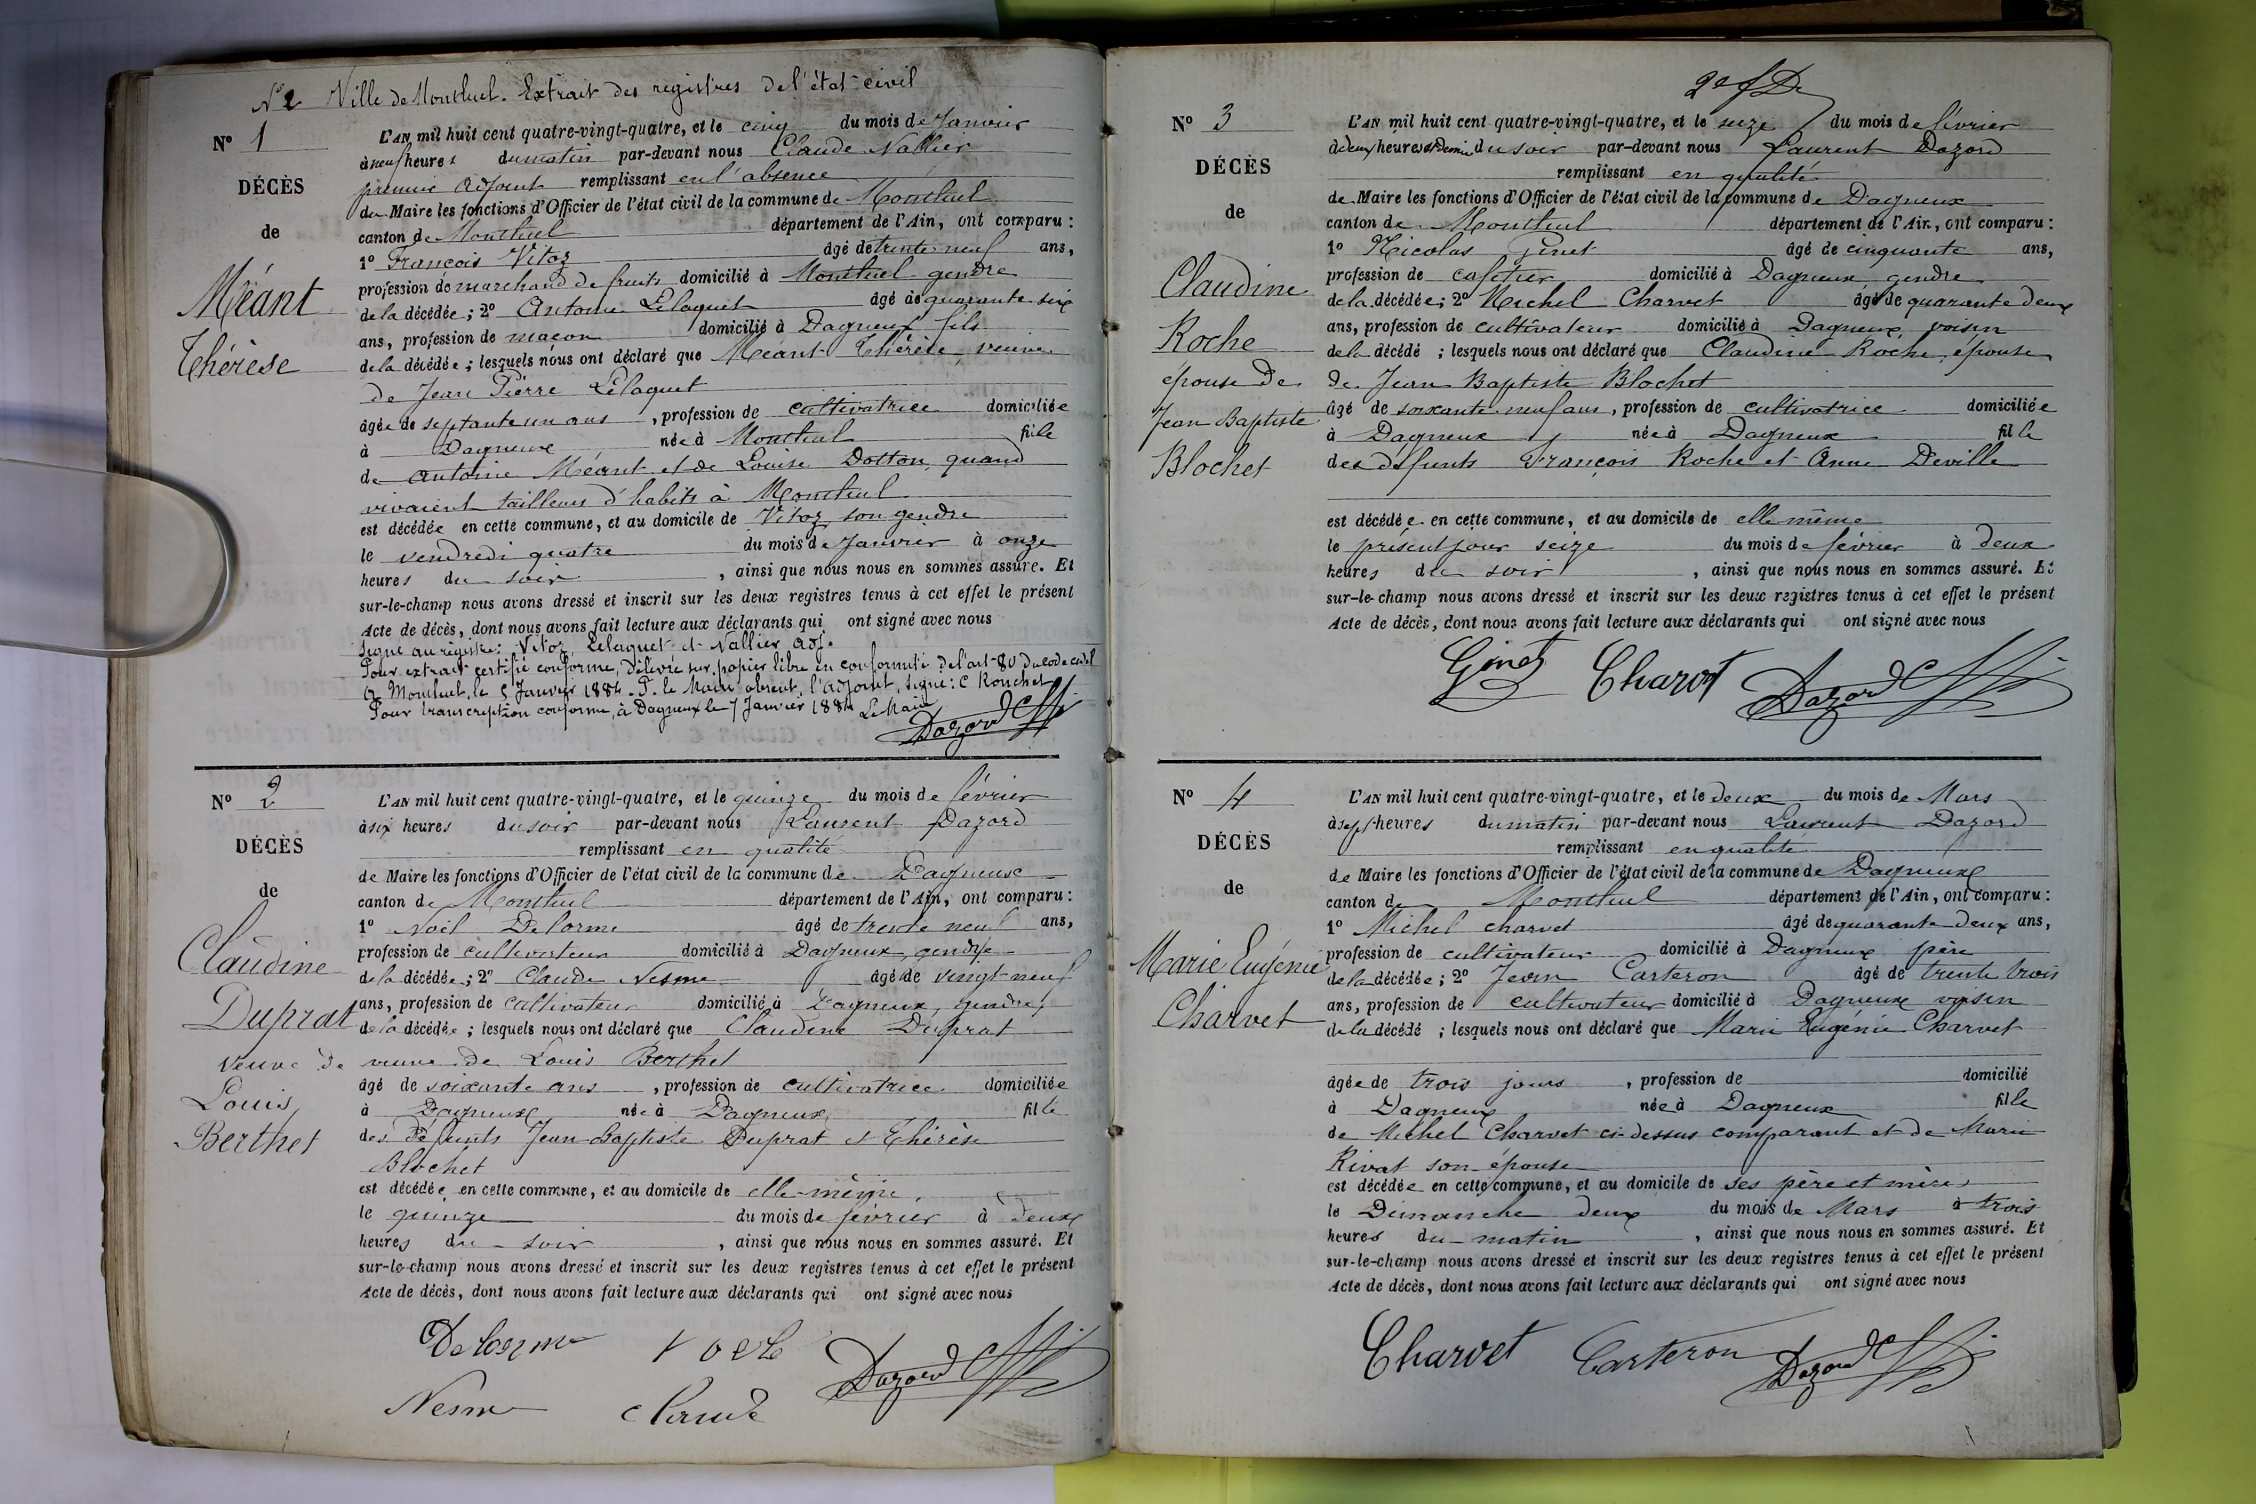 N° 2 Ville de Montluel. Extrait des registres de l'état civil
N° 1
DÉCÈS
de
Méant
Thérèse
L'AN mil huit cent quatre-vingt-quatre, et le cinq du mois de Janvier
à neuf heures du matin par-devant nous Claude Nallier
premier adjoint remplissant en l'absence
du Maire les fonctions d'Officier de l'état civil de la commune de Montluel
canton de Montluel département de l'Ain, ont comparu :
1° François Vitoz âgé de trente-neuf ans,
profession de marchand de fruits domicilié à Montluel gendre
de la décédée ; 2° Antoine Lélaquet âgé de quarante six
ans, profession de maçon domicilié à Dagneux fils
de la décédée ; lesquels nous ont déclaré que Méant Thérèse, veuve
de Jean Pierre Lélaquet
âgée de septante un ans , profession de cultivatrice domiciliée
à Dagneux née à Montluel fille
de Antoine Méant et de Louise Dotton, quand
vivaient tailleurs d'habits à Montluel
est décédée en cette commune, et au domicile de Vitoz, son gendre
le vendredi quatre du mois de Janvier à onze
heures du soir , ainsi que nous nous en sommes assuré. Et
sur-le-champ nous avons dressé et inscrit sur les deux registres tenus à cet effet le présent
Acte de décès, dont nous avons fait lecture aux déclarants qui ont signé avec nous
Signé au registre : Vitoz, Lélaquet et Nallier adj.
Pour extrait certifié conforme, délivré sur papier libre en conformité de l'art 80 du code civil
à Montluel, le 5 Janvier 1884. P. le Maire absent, l'adjoint, signé : C Ronchet
Pour transcription conforme, à Dagneux le 7 Janvier 1884 Le Maire
Dazord
N° 2
DÉCÈS
de
Claudine
Duprat
veuve de
Louis
Berthet
L'AN mil huit cent quatre-vingt-quatre, et le quinze du mois de février
à six heures du soir par-devant nous Laurent Dazord
remplissant en qualité
de Maire les fonctions d'Officier de l'état civil de la commune de Dagneux
canton de Montluel département de l'Ain, ont comparu :
1° Noël Delorme âgé de trente neuf ans,
profession de cultivateur domicilié à Dagneux, gendre
de la décédée ; 2° Claude Nesme âgé de vingt-neuf
ans, profession de cultivateur domicilié à Dagneux, gendre
de la décédée ; lesquels nous ont déclaré que Claudine Duprat
veuve de Louis Berthet
âgé de soixante ans , profession de cultivatrice domiciliée
à Dagneux née à Dagneux fille
des défunts Jean Baptiste Duprat et Thérèse
Blochet
est décédée en cette commune, et au domicile de elle-même
le quinze du mois de février à deux
heures du soir , ainsi que nous nous en sommes assuré. Et
sur-le-champ nous avons dressé et inscrit sur les deux registres tenus à cet effet le présent
Acte de décès, dont nous avons fait lecture aux déclarants qui ont signé avec nous
Delorme Noel Dazord
Nesme Claude
N° 3
DÉCÈS
de
Claudine
Roche
épouse de
Jean Baptiste
Blochet
L'AN mil huit cent quatre-vingt-quatre, et le seize du mois de février
à deux heures et demie du soir par-devant nous Laurent Dazord
remplissant en qualité
de Maire les fonctions d'Officier de l'état civil de la commune de Dagneux
canton de Montluel département de l'Ain, ont comparu :
1° Nicolas Ginet âgé de cinquante ans,
profession de cafetier domicilié à Dagneux gendre
de la décédée ; 2° Michel Charvet âgé de quarante deux
ans, profession de cultivateur domicilié à Dagneux, voisin
de la décédé ; lesquels nous ont déclaré que Claudine Roche, épouse
de Jean Baptiste Blochet
âgé de soixante-neuf ans , profession de cultivatrice domiciliée
à Dagneux née à Dagneux fille
des défunts François Roche et Anne Deville
est décédée en cette commune, et au domicile de elle même
le présent jour seize du mois de février à deux
heures du soir , ainsi que nous nous en sommes assuré. Et
sur-le-champ nous avons dressé et inscrit sur les deux registres tenus à cet effet le présent
Acte de décès, dont nous avons fait lecture aux déclarants qui ont signé avec nous
Ginet Charvet Dazord
N° 4
DÉCÈS
de
Marie Eugénie
Charvet
L'AN mil huit cent quatre-vingt-quatre, et le deux du mois de Mars
à sept heures du matin par-devant nous Laurent Dazord
remplissant en qualité
de Maire les fonctions d'Officier de l'état civil de la commune de Dagneux
canton de Montluel département de l'Ain, ont comparu :
1° Michel Charvet âgé de quarante deux ans,
profession de cultivateur domicilié à Dagneux père
de la décédée ; 2° Jean Carteron âgé de trente trois
ans, profession de cultivateur domicilié à Dagneux voisin
de la décédé ; lesquels nous ont déclaré que Marie Eugénie Charvet
âgée de trois jours , profession de domicilié
à Dagneux née à Dagneux fille
de Michel Charvet ci-dessus comparant et de Marie
Rivat son épouse
est décédée en cette commune, et au domicile de ses père et mère
le Dimanche deux du mois de Mars à trois
heures du matin , ainsi que nous nous en sommes assuré. Et
sur-le-champ nous avons dressé et inscrit sur les deux registres tenus à cet effet le présent
Acte de décès, dont nous avons fait lecture aux déclarants qui ont signé avec nous
Charvet Carteron Dazord